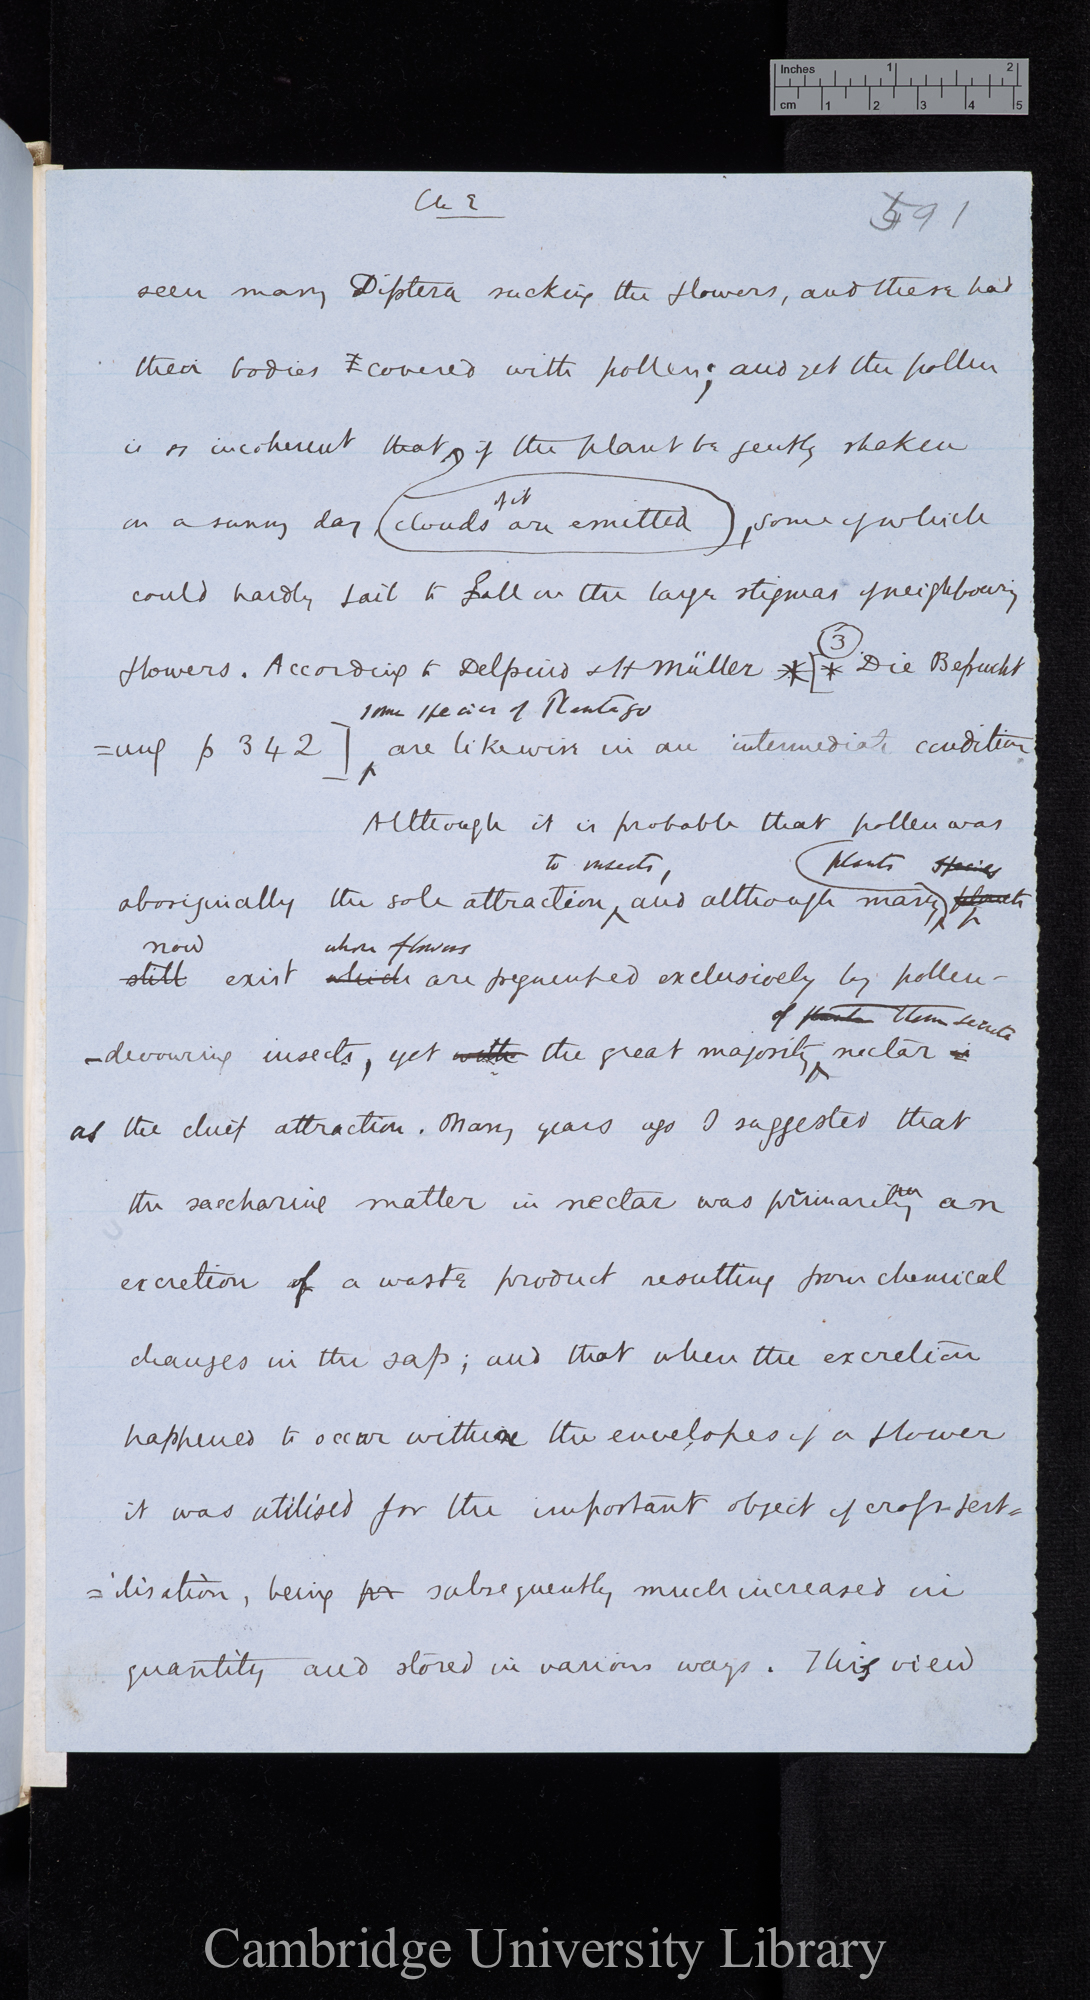 Inches 1 2
cm 1 2 3 4 5
Ch 2
591
seen many Diptera sucking the flowers, and these had
their bodies covered with pollen; and yet the pollen
is so incoherent that, if the plant be gently shaken
on a sunny day
of it
clouds are emitted, some of which
could hardly fail to fall on the large stigmas of neighbouring
flowers. According to Delpino & H Müller * [* 3 Die Befrucht
some species of Plantago
=ung p 342] are likewise in an intermediate condition.
Although it is probable that pollen was
to insects, plants species
aboriginally the sole attraction, and although many plants
now whose flowers
still exist which are frequented exclusively by pollen-
of plants them secrete
-devouring insects, yet with the great majority nectar is
as the chief attraction. Many years ago I suggested that
the saccharine matter in nectar was primarily an
excretion of a waste product resulting from chemical
changes in the sap; and that when the excretion
happened to occur within the envelopes of a flower
it was utilised for the important object of cross-fert=
=ilisation, being subsequently much increased in
quantity and stored in various ways. This view
Cambridge University Library